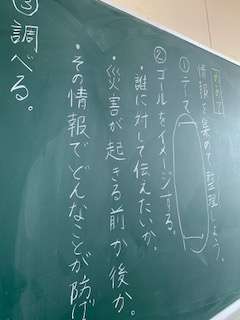 めあて
情報を集めて整理しよう。
①テーマ
②ゴールをイメージする。
・誰に対して伝えたいか。
・災害が起きる前か後か。
・その情報でどんなことが防げ
③調べる。